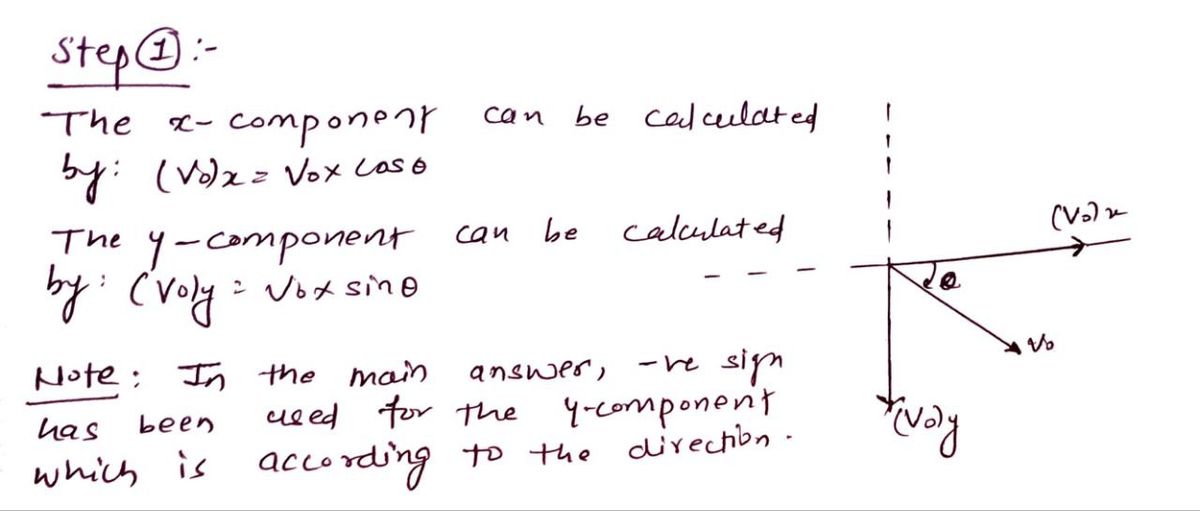 Step ① :-
The x-component can be calculated
by: (V₀)x = V₀ × cos θ
The y-component can be calculated
by: (V₀)y = V₀ × sin θ
Note: In the main answer, -ve sign
has been used for the y-component
which is according to the direction.
(V₀)x
θ
V₀
(V₀)y